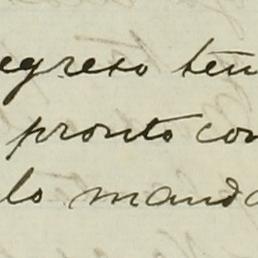 egreso ten
pronto con
lo manda